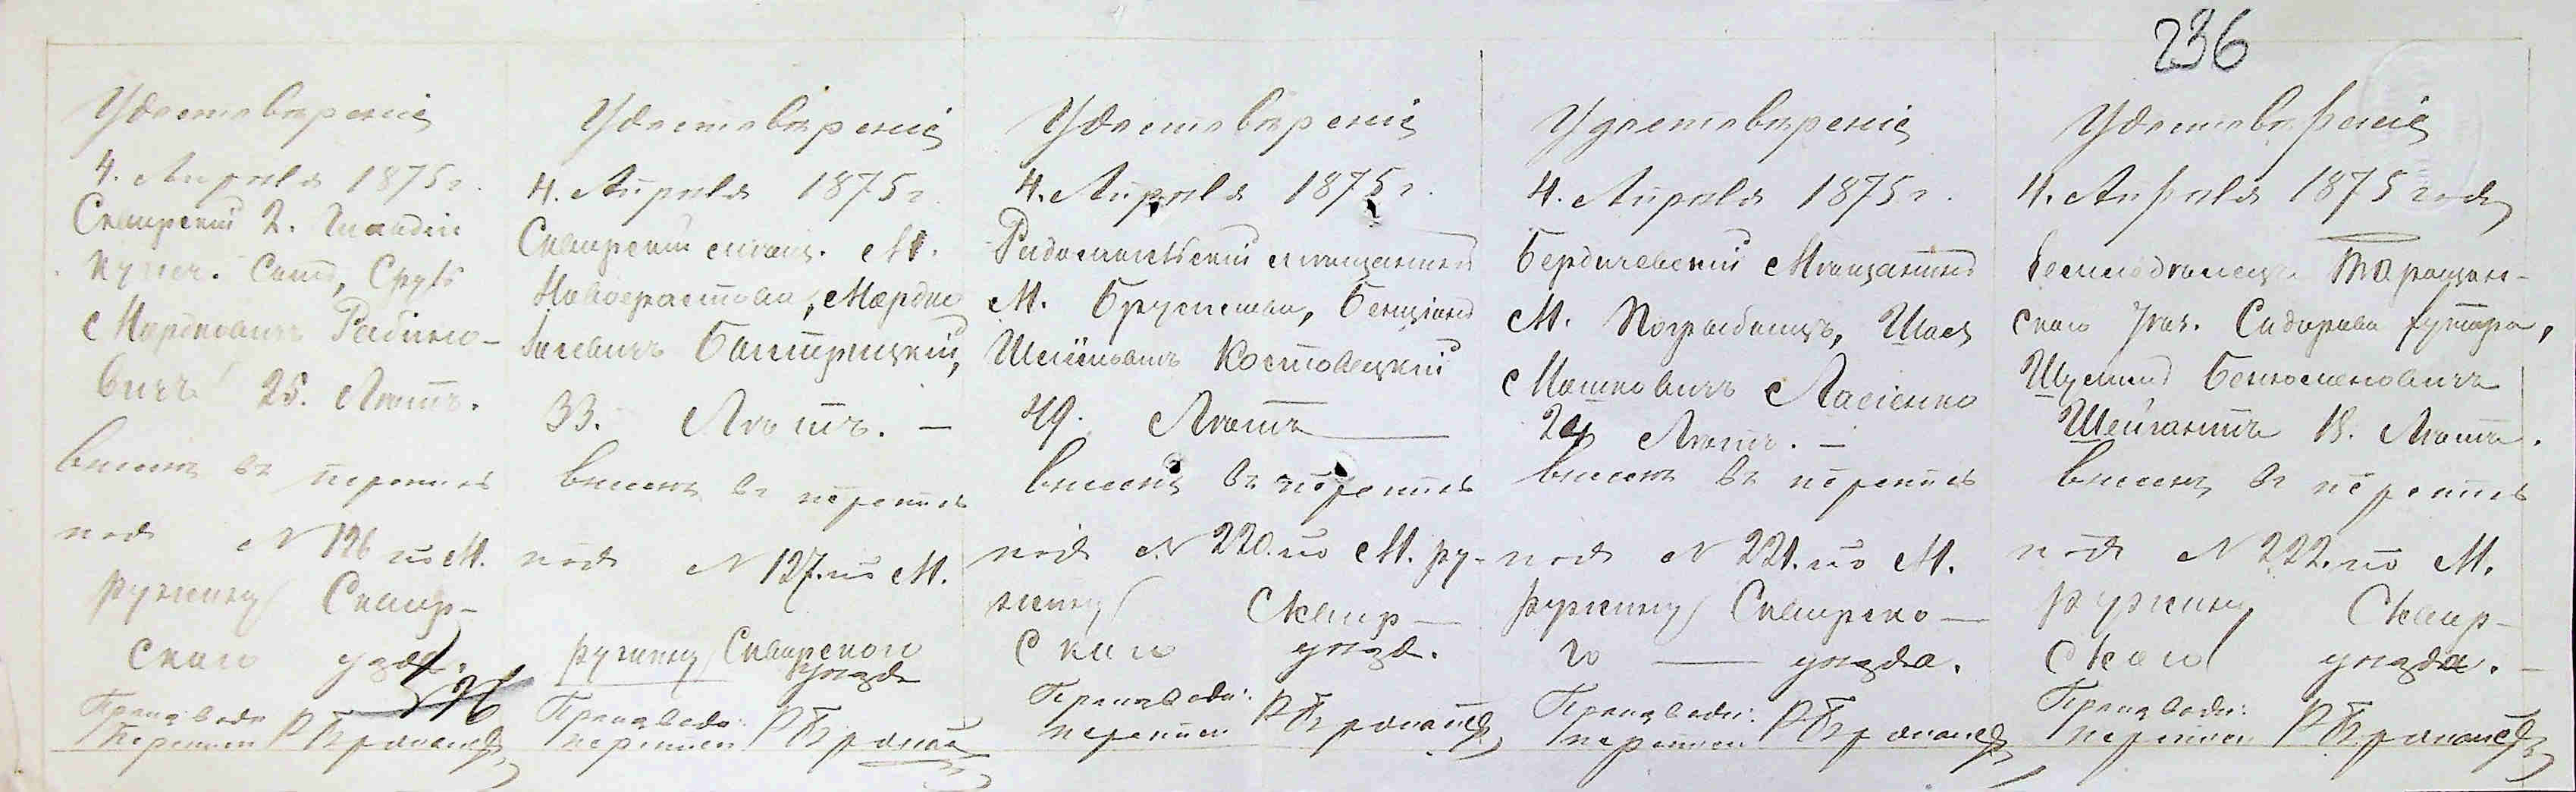 236
Удостовѣреніе
4. Апрѣля 1875 г.
Сквирскій 2. Гильдіи
Купеч. Сынъ, Сруль
Мордковичъ Рабино-
вичъ 25. Лѣтъ.
внесенъ въ перепись
подъ N 126 по М.
Ружину Сквир-
скаго уѣзд.
Производ.
переписи
Удостовѣреніе
4. Апрѣля 1875 г.
Сквирскій мѣщ. М.
Новофастова, Мордко
Бастрицкій,
33. Лѣтъ. —
внесенъ въ перепись
подъ N 127. по М.
Ружину Сквирского
уѣзда
Производ:
переписи
Удостовѣреніе
4. Апрѣля 1875 г.
Радомысльскій мѣщанинъ
М. Брусилова, Бенціонъ
Костовецкій
49. Лѣтъ —
внесенъ въ перепись
подъ N 220. по М. Ру-
жину Сквир-
скаго уѣзд.
Производи:
переписи
Удостовѣреніе
4. Апрѣля 1875 г.
Бердичевскій Мѣщанинъ
М. Погребищъ, Шаея
Мошковичъ
Лѣтъ. —
внесенъ въ перепись
подъ N 221. по М.
Ружину Сквирско-
го — уѣзда.
Производи:
переписи
Удостовѣреніе
4. Апрѣля 1875 года
Таращан-
скаго Уѣз. Сидорова хутора,
Шулимъ
18. Лѣтъ.
внесенъ въ перепись
подъ N 222. по М.
Ружину Сквир-
скаго уѣзда. —
Производи:
переписи